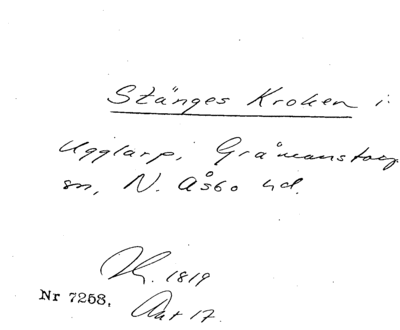 Stänges Kroken i
Ugglarp, Gråmanstorp
sn, N. Åsbo hd.
1819
Nr 7258, Akt 17.